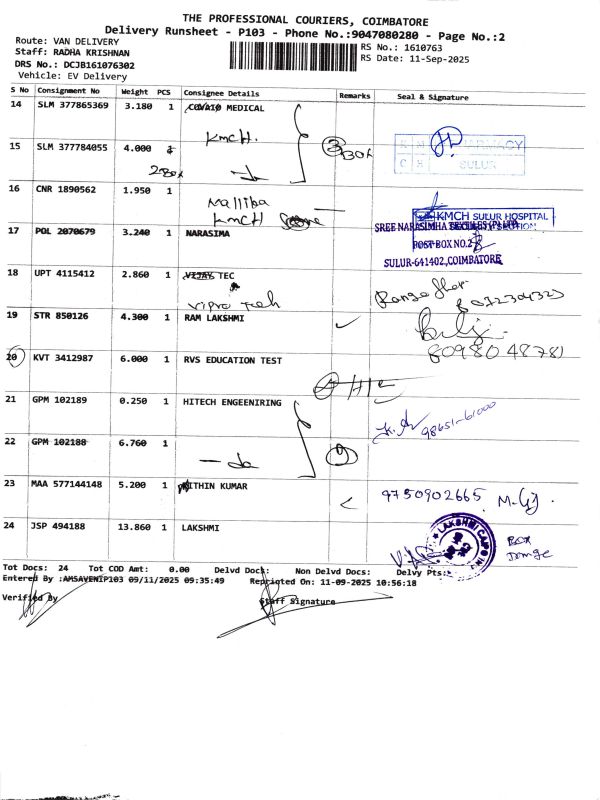 THE PROFESSIONAL COURIERS, COIMBATORE
Delivery Runsheet - P103 - Phone No.:9047080280 - Page No.:2
Route: VAN DELIVERY
Staff: RADHA KRISHNAN
DRS No.: DCJB161076302
Vehicle: EV Delivery
RS No.: 1610763
RS Date: 11-Sep-2025
S No Consignment No Weight PCS Consignee Details Remarks Seal & Signature
14 SLM 377865369 3.180 1 COVAIO MEDICAL
KMCH.
15 SLM 377784055 4.000
3 Box
2 Box
PHARMACY
SULUR
16 CNR 1890562 1.950 1
KMCH
KMCH SULUR HOSPITAL
17 POL 2070679 3.240 1 NARASIMA
SREE NARASIMHA TEXTILES (P) LTD
POST BOX NO.2
SULUR-641402, COIMBATORE
18 UPT 4115412 2.860 1 VIJAY TEC
Vipro Tech
19 STR 850126 4.300 1 RAM LAKSHMI
20 KVT 3412987 6.000 1 RVS EDUCATION TEST
8098048781
21 GPM 102189 0.250 1 HITECH ENGEENIRING
98651-61000
22 GPM 102188 6.760 1
23 MAA 577144148 5.200 1 NITHIN KUMAR
9750902665
24 JSP 494188 13.860 1 LAKSHMI
LAKSHMI
Box
Tot Docs: 24 Tot COD Amt: 0.00 Delvd Docs: Non Delvd Docs: Delvy Pts:
Entered By :AMSAVENIP103 09/11/2025 09:35:49 Reprinted On: 11-09-2025 10:56:18
Verified By Staff Signature